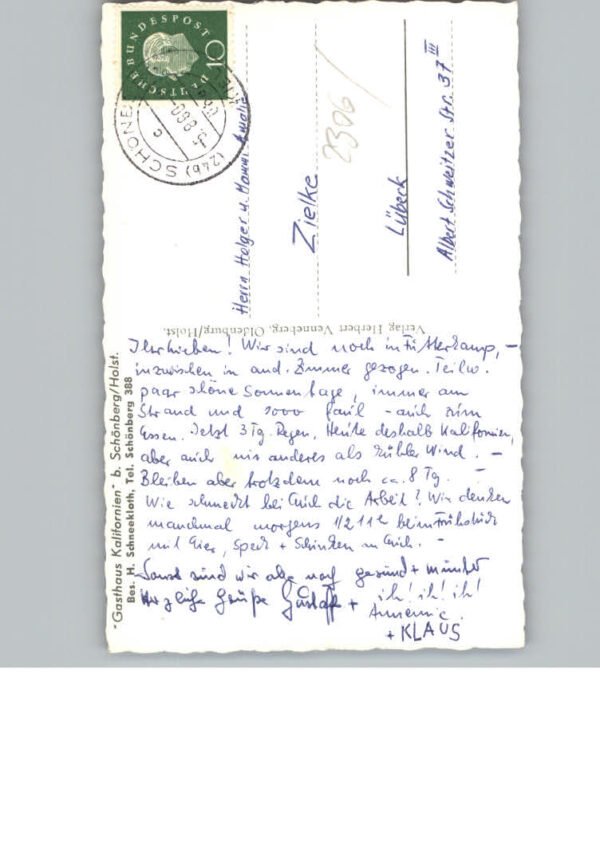 DEUTSCHE BUNDESPOST
10
(24b) SCHÖNBE
-8.8.60
c
Herrn Holger u. Hanni Amalie
Zielke
2306/
Lübeck
Albert Schweitzer Str. 37 III
Verlag Herbert Venneberg, Oldenburg/Holst.
"Gasthaus Kalifornien" b. Schönberg/Holst.
Bes. H. Schneekloth, Tel. Schönberg 388
Ihr Lieben! Wir sind noch in Fütterkamp, –
inzwischen in and. Zimmer gezogen. Teilw.
paar schöne Sonnentage, immer am
Strand und sooo faul – auch zum
Essen. Jetzt 3 Tg. Regen. Heute deshalb Kalifornien,
aber auch nix anderes als kühler Wind. –
Bleiben aber trotzdem noch ca. 8 Tg. –
Wie schmeckt bei Euch die Arbeit? Wir denken
manchmal morgens 1/2 11h beim Frühstück
mit Eier, Speck + Schinken an Euch. –
Sonst sind wir alle noch gesund + munter
ih! ih! ih!
Herzliche Grüße Gustaff +
Annemie
+ KLAUS